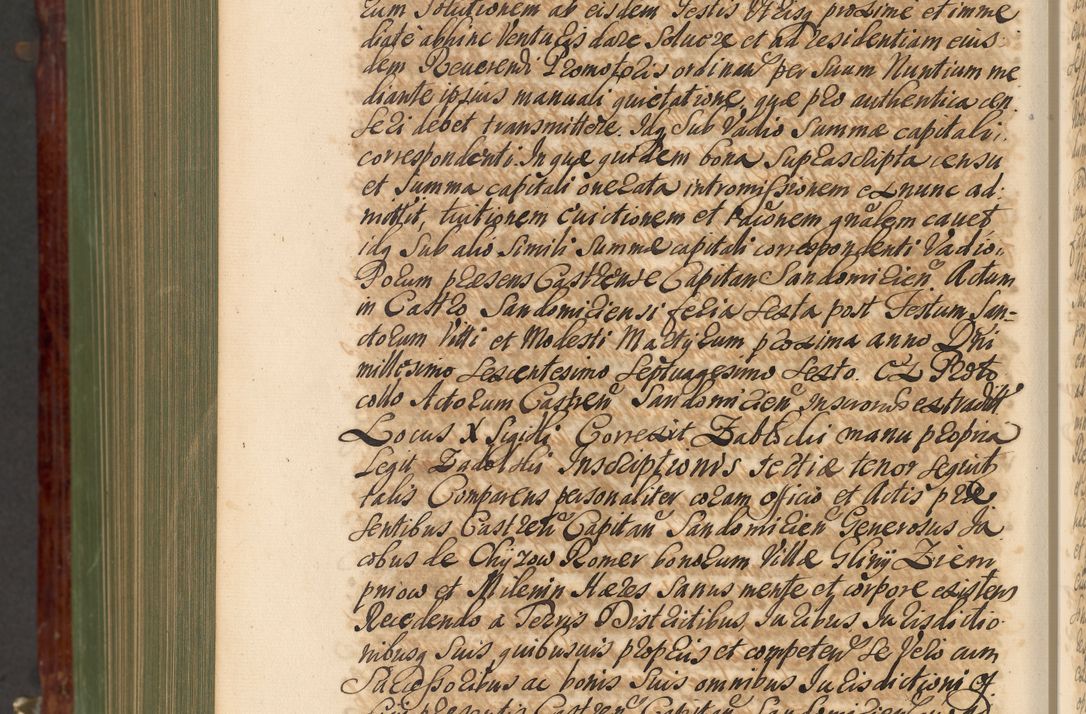 cum Solutionem ab eisdem Festis
diate abhinc Venturis dare Soluere et ad residentiam eius
dem Reuerendi Promotoris ordinar per Suum Nuntium me
diante ipsius manuali quietatione, quæ pro authentica cen
seri debet transmittere. Idq Sub Vadio Summæ capitali
correspondenti. In quæ quidem bona Suprascripta censu
et Summa capitali onerata intromissionem ex nunc ad
mittit, tuitionem euictionem et gnalem cauet
idq Sub alio Simili Summæ capitali correspondenti Vadio.
Forum præsens Castrense Capitan Sandomirien. Actum
in Castro Sandomiriensi feria Sexta post Festum San=
ctorum Viti et Modesti Martyrum proxima anno Dni
millesimo Sexcentesimo Septuagesimo Sexto. Ex Proto
collo Actorum Castren Sandomirien extradit
Locus X Sigilli Correxit manu propria
Legit Inscriptionis tertiæ tenor sequit
talis Comparens personaliter coram officio et Actis præ
sentibus Castren Capitan Sandomirien Generosus Ja
cobus de Chyzow Romer bonorum Villæ Gliny Ziem
pniow et Milenin Hæres Sanus mente et corpore existens
Recedendo a Terris Districtibus Juribus Jurisdictio
nibusq Suis quibusuis proprys et competen Se Vero cum
Successoribus ac bonis Suis omnibus Jurisdictioni